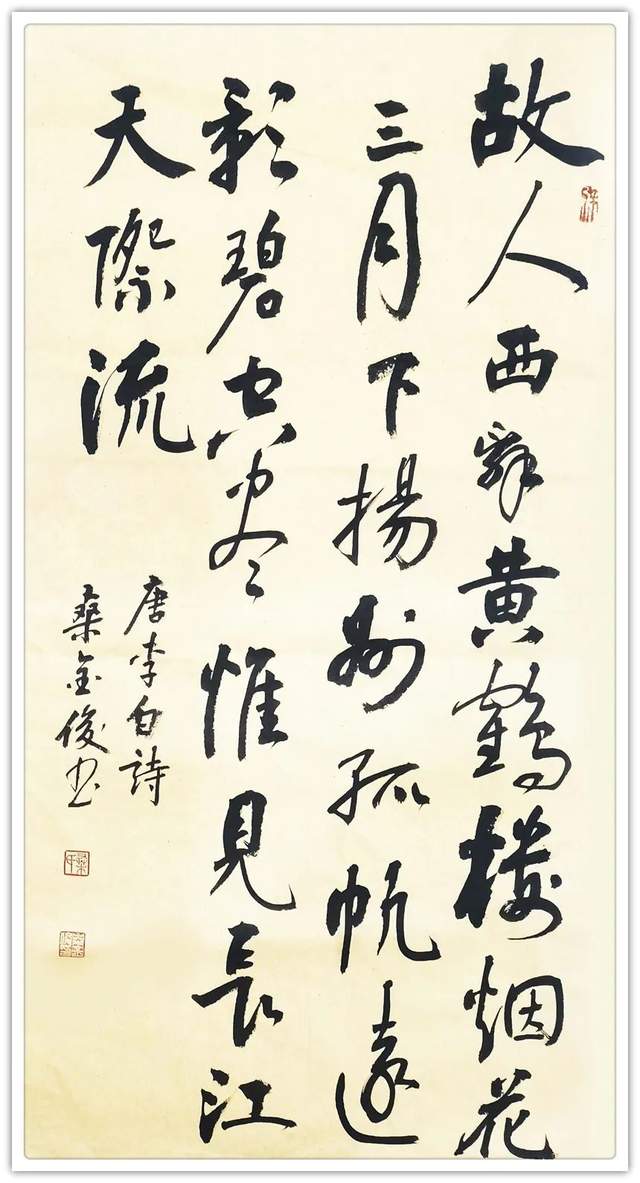 故人西辞黄鹤楼烟花
三月下揚州孤帆遠
影碧空尽惟見長江
天際流
唐李白詩
桑金俊书